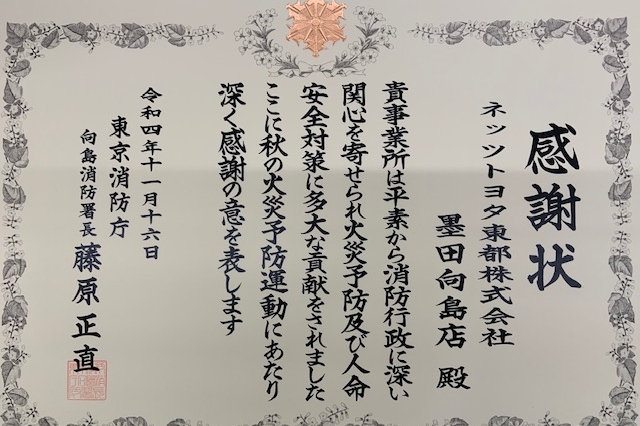 感謝状
ネッツトヨタ東都株式会社
墨田向島店 殿
貴事業所は平素から消防行政に深い
関心を寄せられ火災予防及び人命
安全対策に多大な貢献をされました
ここに秋の火災予防運動にあたり
深く感謝の意を表します
令和四年十一月十六日
東京消防庁
向島消防署長 藤原正直